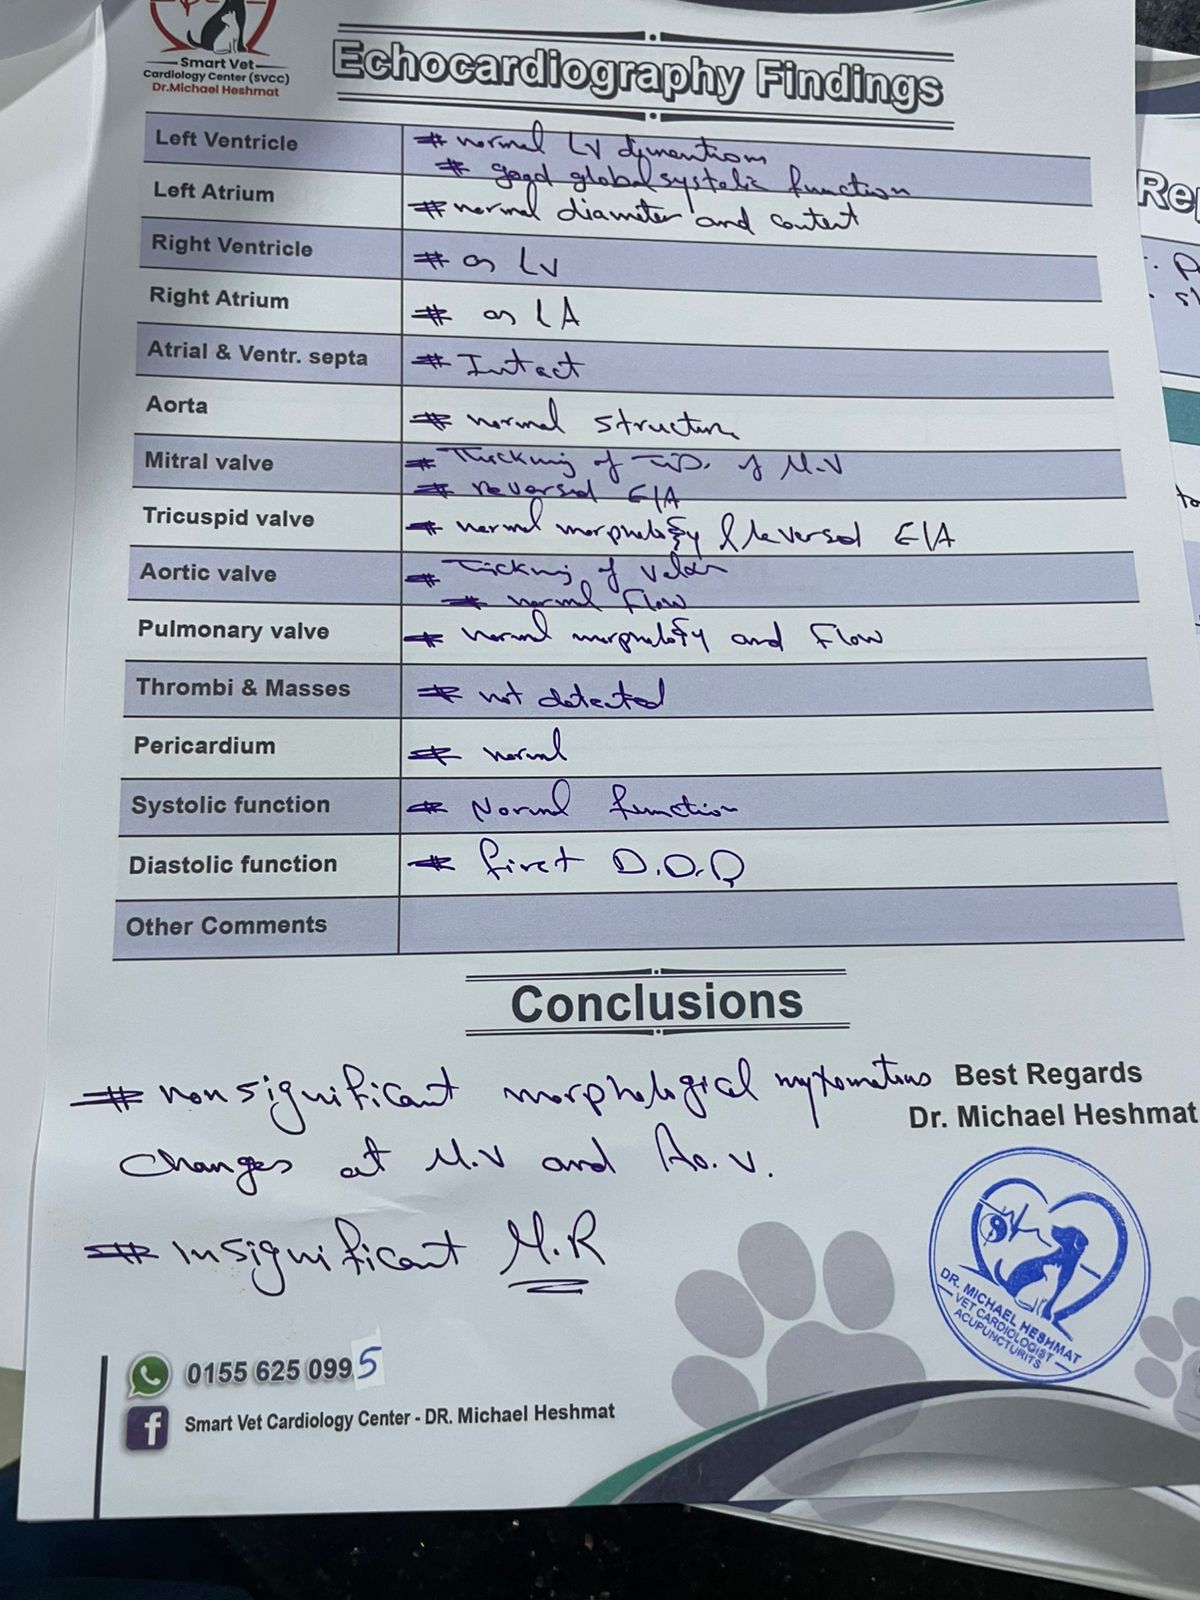 Smart Vet
Cardiology Center (SVCC)
Dr.Michael Heshmat
Echocardiography Findings
Left Ventricle # normal LV dimentions
# good global systolic function
Left Atrium # normal diameter and content
Right Ventricle # as LV
Right Atrium # as LA
Atrial & Ventr. septa # Intact
Aorta # normal structure
Mitral valve # Thickning of of M.V
# reversed E/A
Tricuspid valve # normal morphology & reversed E/A
Aortic valve # Tickning of
# normal Flow
Pulmonary valve # normal morphology and Flow
Thrombi & Masses # not detected
Pericardium # normal
Systolic function # Normal function
Diastolic function # first D.D.D
Other Comments
Conclusions
# nonsignificant morphological myxomatous
changes at M.V and Ao.V.
# Insignificant M.R
Best Regards
Dr. Michael Heshmat
DR. MICHAEL HESHMAT
VET CARDIOLOGIST
ACUPUNCTURITS
0155 625 0995
Smart Vet Cardiology Center - DR. Michael Heshmat
Re